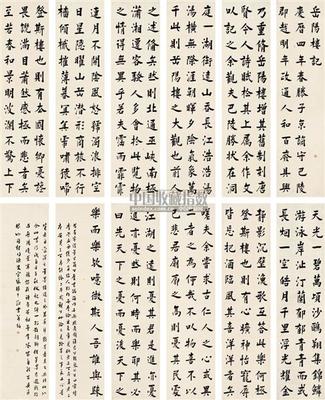 岳陽樓記
慶曆四年春滕子京謫守巴陵
郡越明年政通人和百廢具興
乃重修岳陽樓增其舊制刻唐
賢今人詩賦於其上屬余作文
以記之余觀夫巴陵勝狀在洞
庭一湖銜遠山吞長江浩浩湯
湯橫無際涯朝暉夕陰氣象萬
千此則岳陽樓之大觀也前人
之述備矣然則北通巫峽南極
瀟湘遷客騷人多會於此覽物
之情得無異乎若夫霪雨霏霏
連月不開陰風怒號濁浪排空
日星隱曜山岳潛形商旅不行
檣傾楫摧薄暮冥冥虎嘯猿啼
登斯樓也則有去國懷鄉憂讒
畏譏滿目蕭然感極而悲者矣
至若春和景明波瀾不驚上下
天光一碧萬頃沙鷗翔集錦鱗
游泳岸芷汀蘭郁郁青青而或
長煙一空皓月千里浮光耀金
靜影沉璧漁歌互答此樂何極
登斯樓也則有心曠神怡寵辱
皆忘把酒臨風其喜洋洋者矣
嗟夫余嘗求古仁人之心或異
二者之為何哉不以物喜不以
己悲居廟堂之高則憂其民處
江湖之遠則憂其君是進亦憂
退亦憂然則何時而樂耶其必
曰先天下之憂而憂後天下之
樂而樂歟噫微斯人吾誰與歸
中国收藏指数